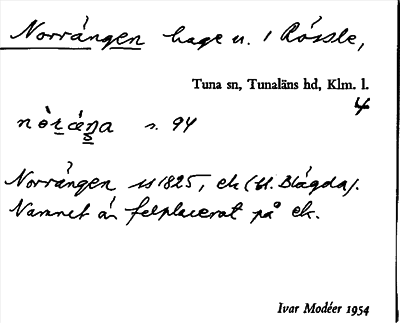 Norrängen hage u. 1 Rössle,
Tuna sn, Tunaläns hd, Klm. l.
4
s. 94
Norrängen SS 1825, ek (bl. Blågda).
Namnet är felplacerat på ek.
Ivar Modéer 1954